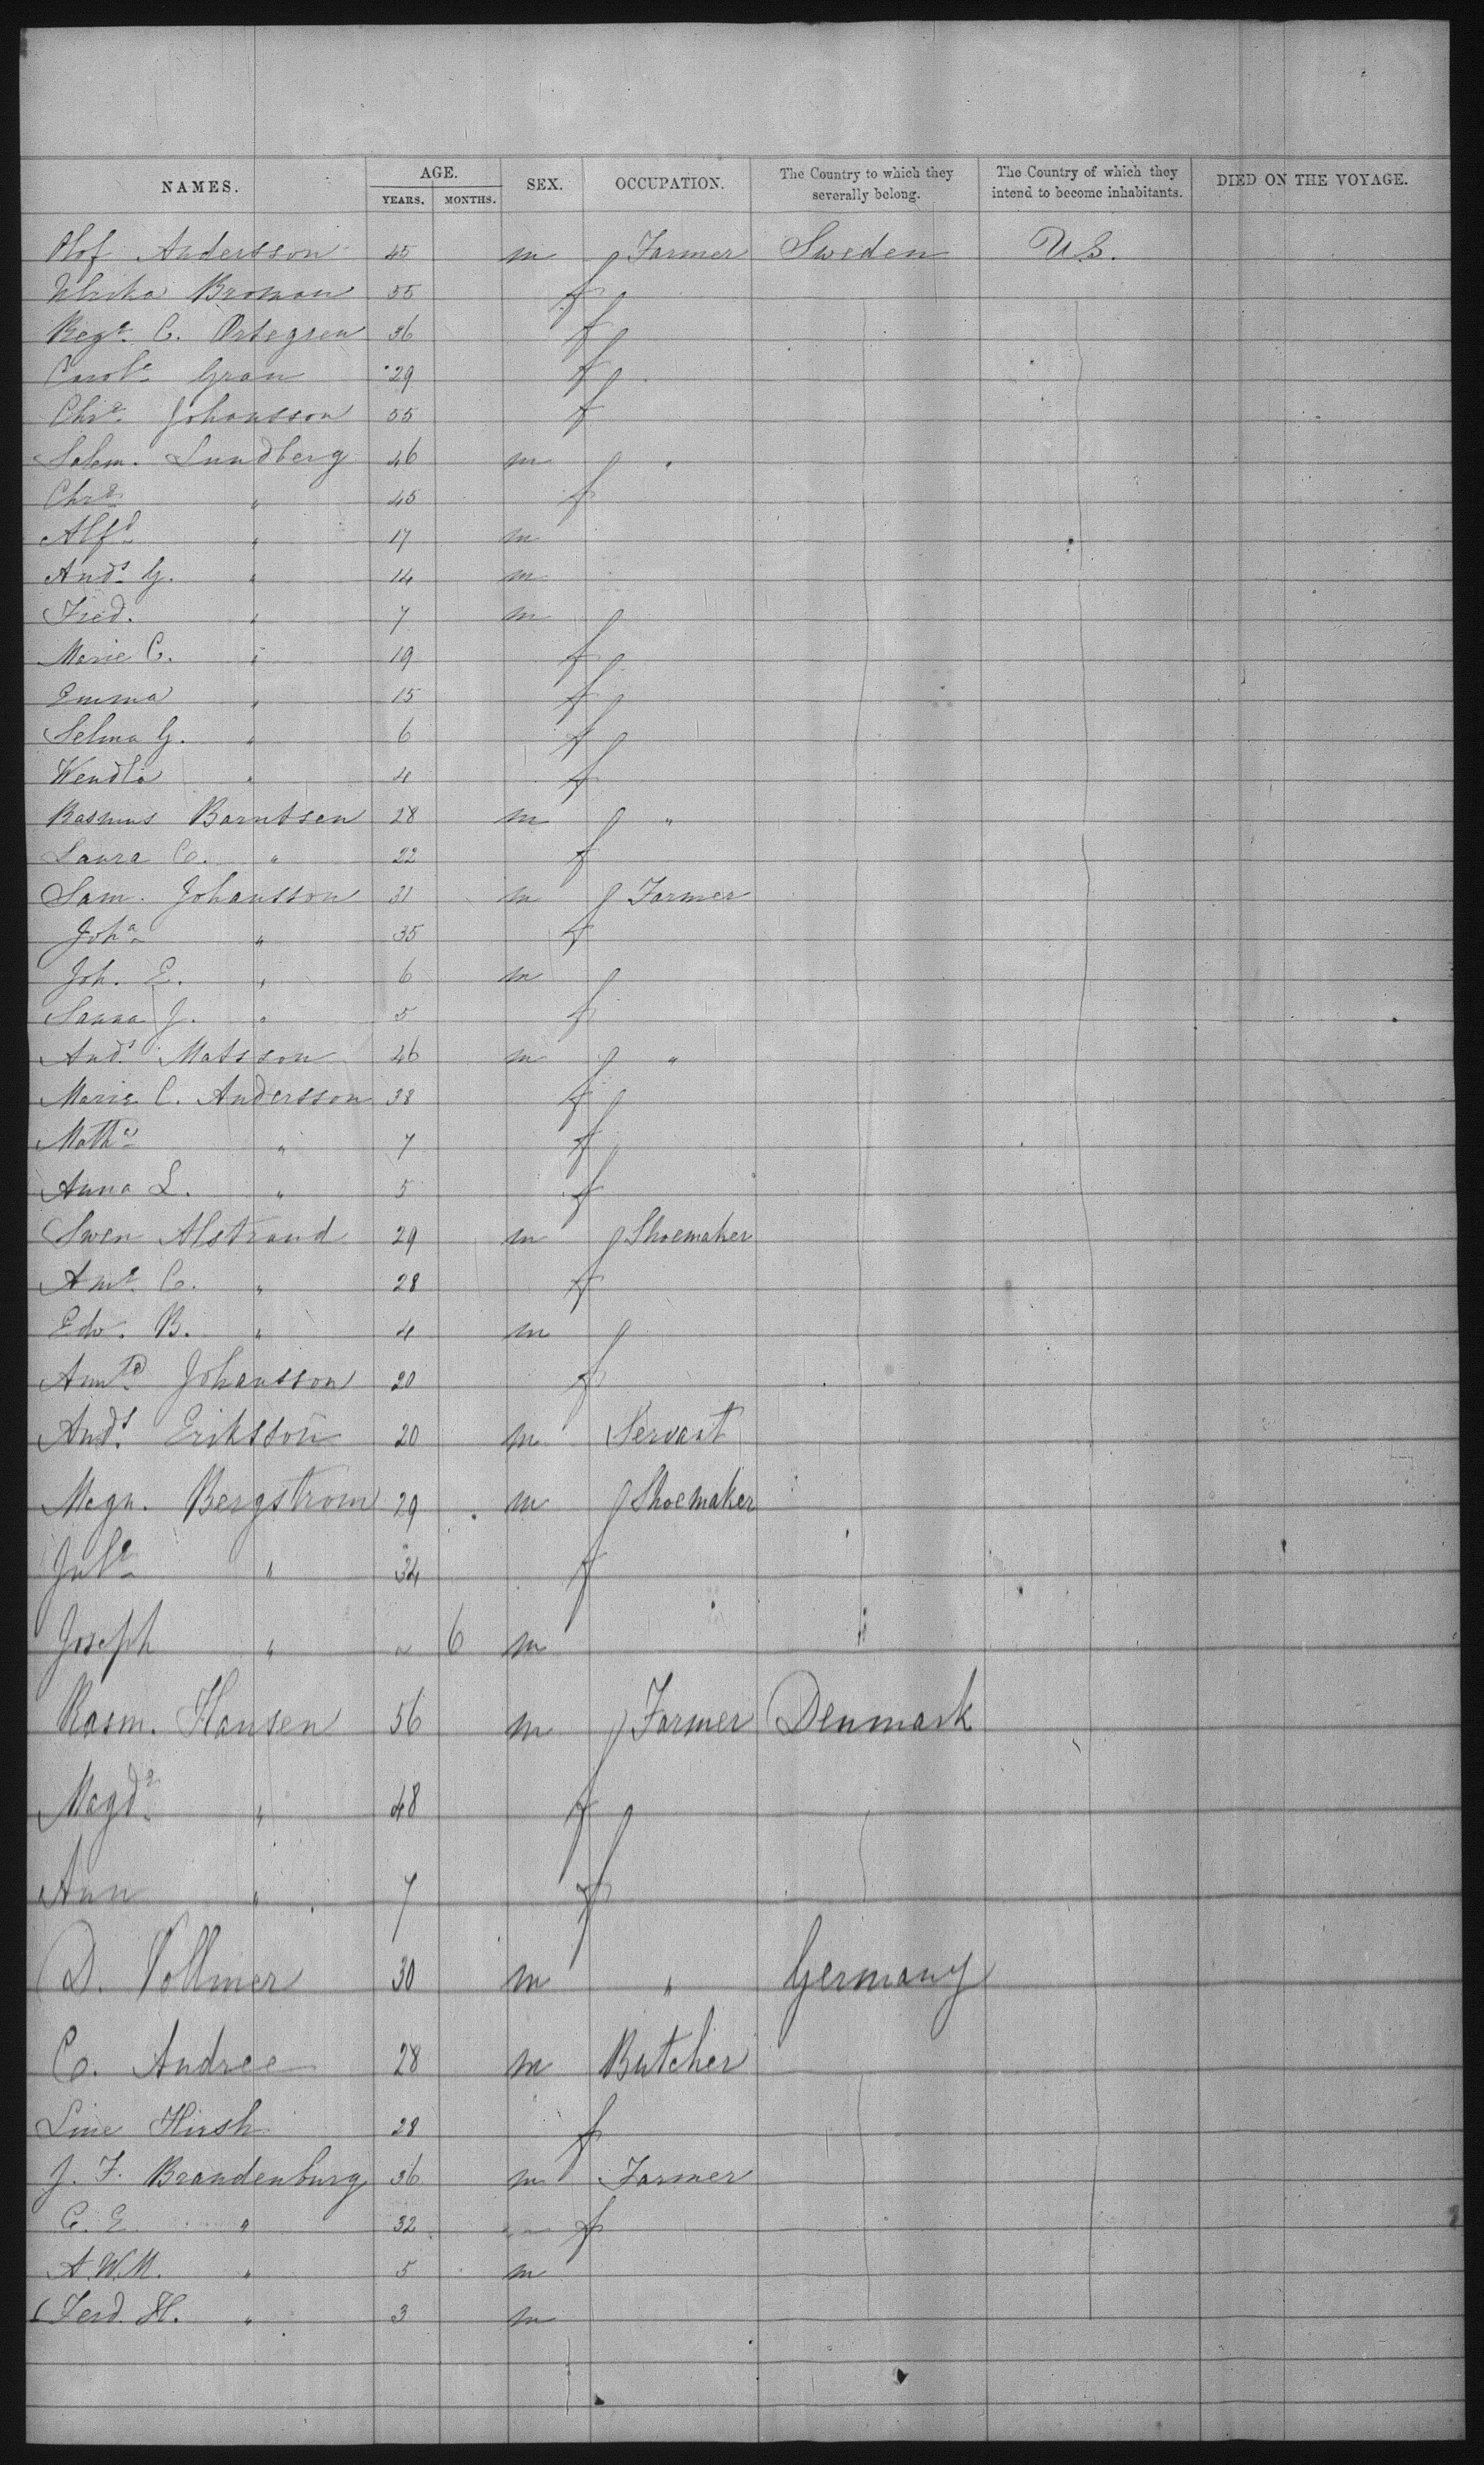 NAMES. AGE. SEX. OCCUPATION. The Country to which they severally belong. The Country of which they intend to become inhabitants. DIED ON THE VOYAGE.
YEARS. MONTHS.
Olof Andersson 45 m Farmer Sweden U.S.
Ulrika Broman 55 f
Regª C. Ortegren 36 f
Carolª Gran 29 f
Chrª Johansson 55 f
Salom. Lundberg 46 m "
Chrª " 45 f
Alfd " 17 m
Ands G. " 14 m
Fred. " 7 m
Marie C. " 19 f
Emma " 15 f
Selma G. " 6 f
Wendla " 4 f
Rasmus Barntsen 28 m "
Laura C. " 22 f
Sam. Johansson 31 m Farmer
Johª " 35 f
Joh. E. " 6 m
Sanna J. " 5 f
Ands Matsson 46 m "
Marie C. Andersson 38 f
Mathª " 7 f
Anna L. " 5 f
Swen Alstrand 29 m Shoemaker
Amª C. " 28 f
Edw. B. " 4 m
Johansson 20 f
Ands Eriksson 20 m Servant
Magn. Bergstrom 29 m Shoemaker
Julª " 34 f
Joseph " " 6 m
Rasm. Hansen 56 m Farmer Denmark
Magdª " 48 f
Ann " 7 f
D. Vollmer 30 m " Germany
C. Andree 28 m Butcher
Line Hirsh 28 f
J. F. Brandenburg 36 m Farmer
C. E. " 32 f
A. W. M. " 5 m
Ferd. H. " 3 m